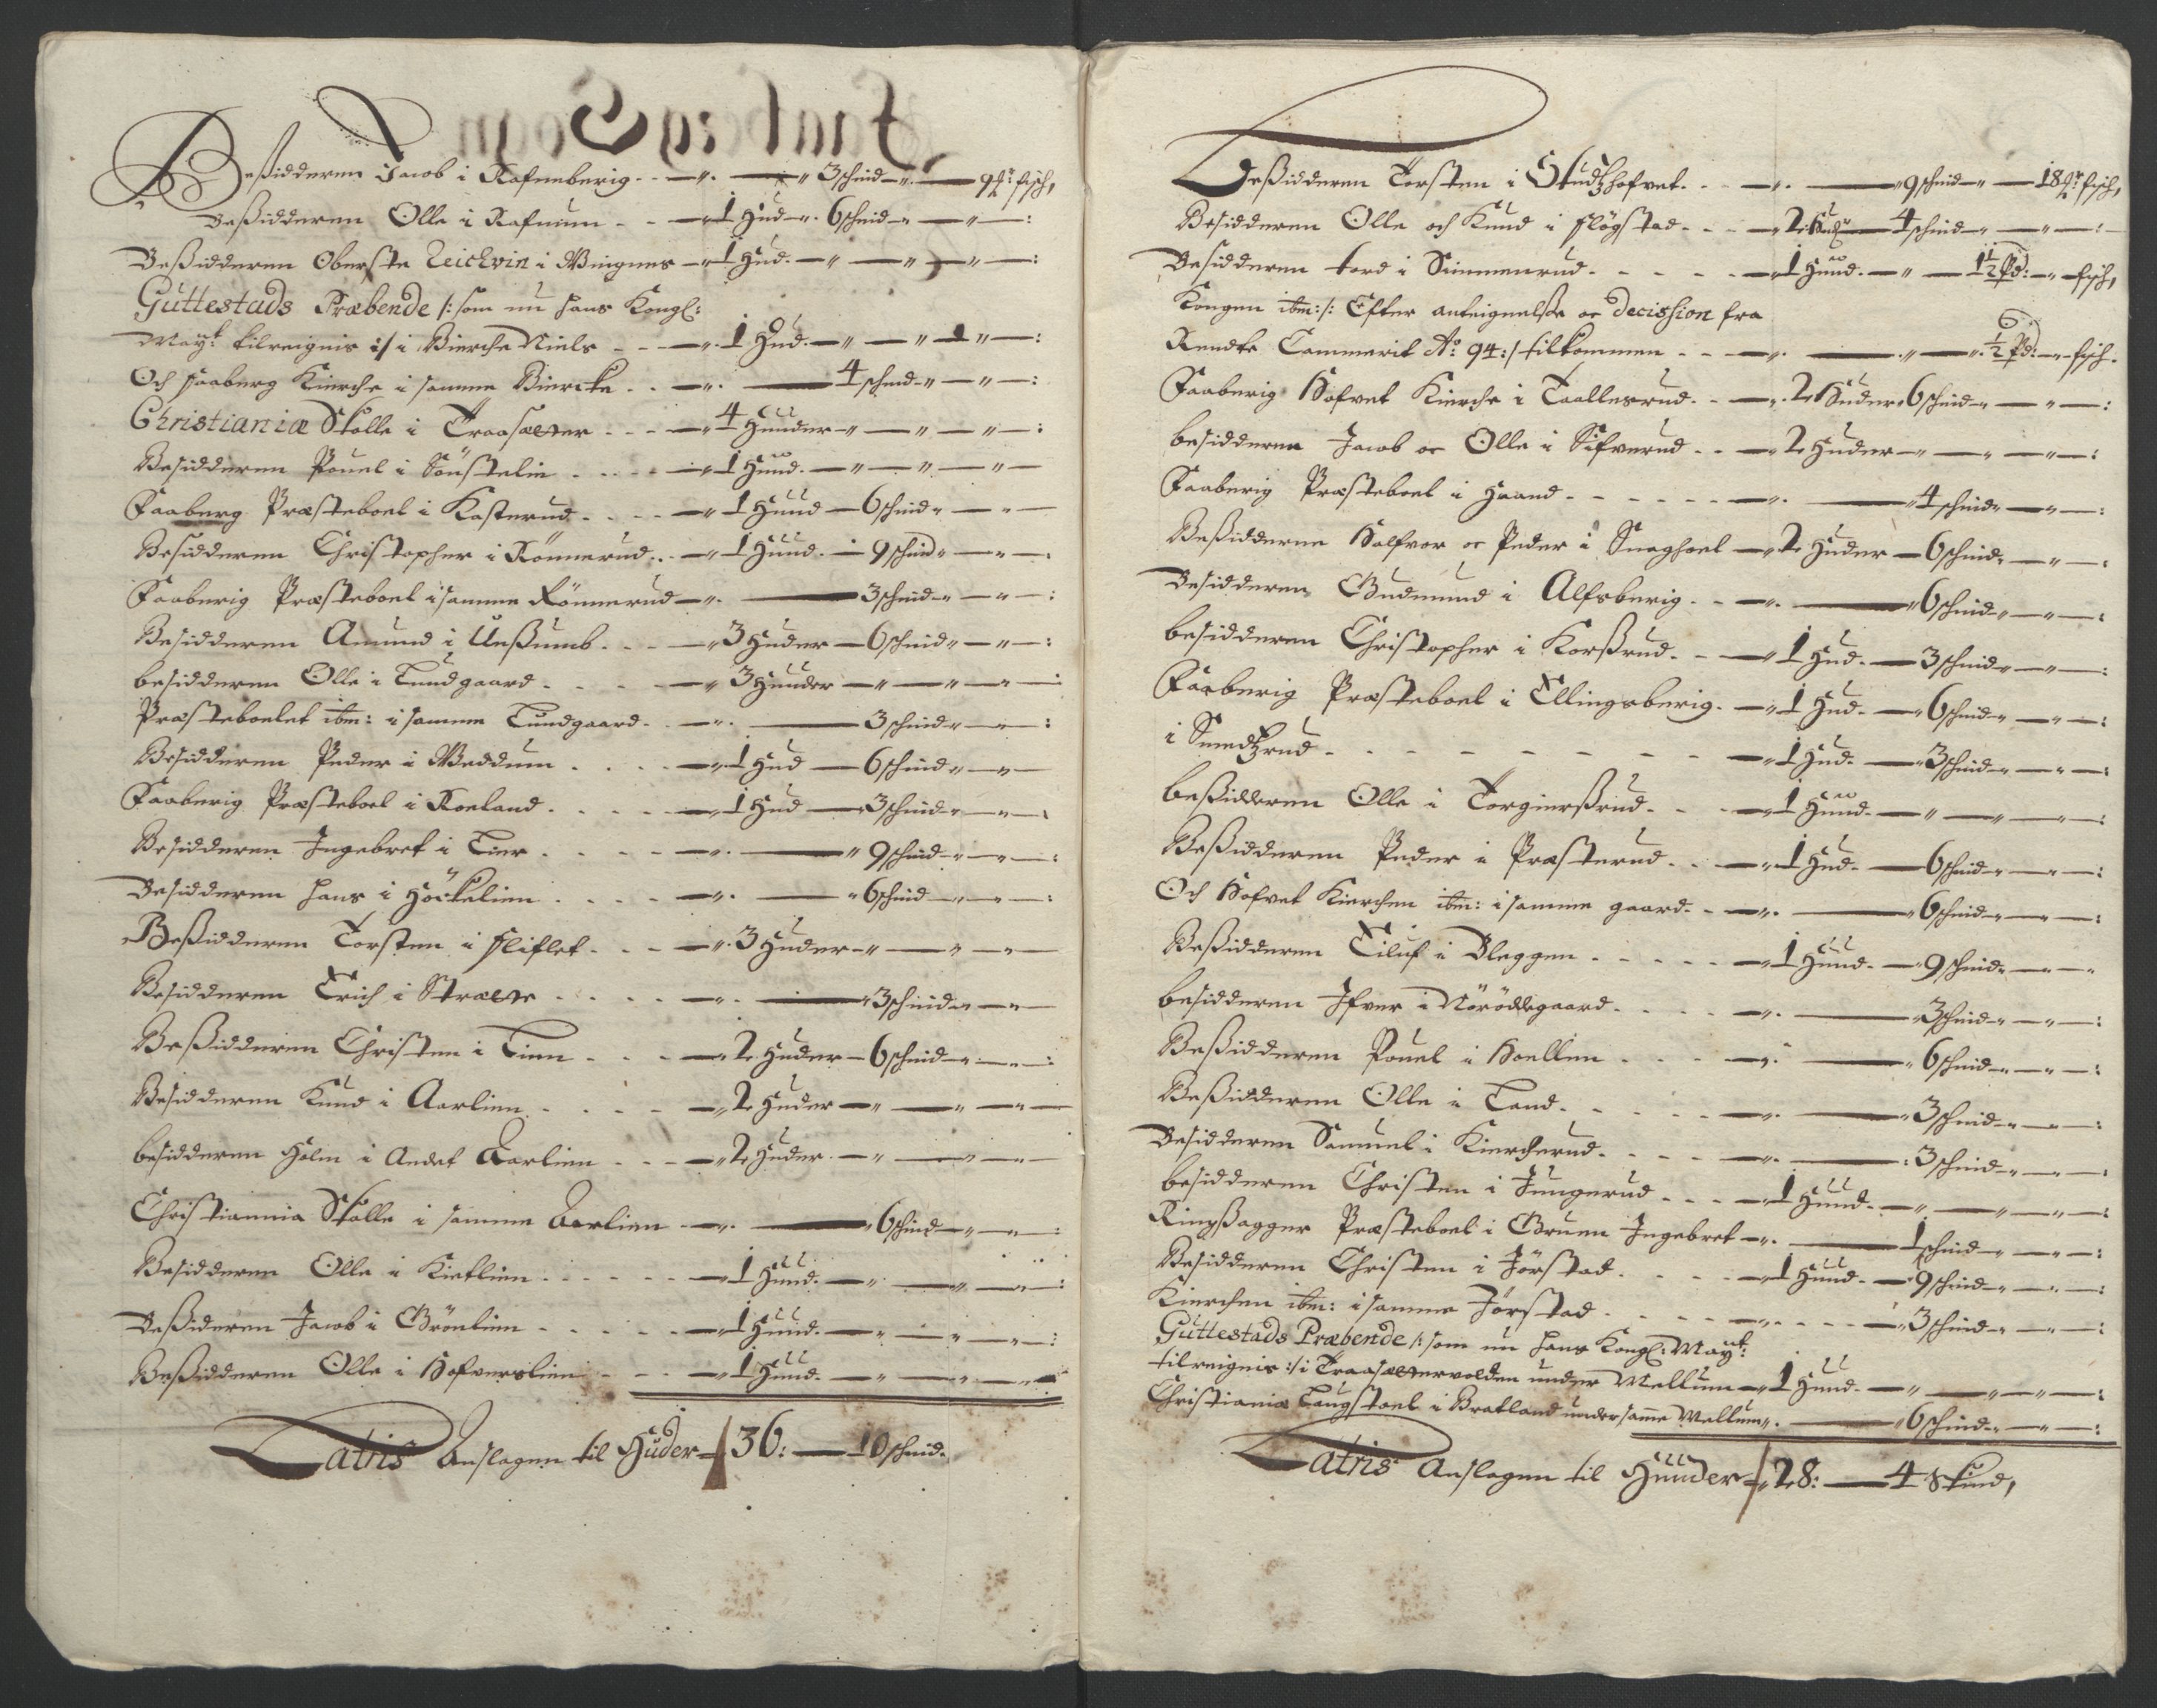 Beßidderen Jacob i Rafneberig - - 3 schind - 9 fisch,
Beßidderen Olle i Rafnum - - 1 Hud - 6 schind
Beßidderen Oberste Zeichvin i Wingnes - 1 Hud
Guttestads Præbende /: som nu hans Kongl:
Mayt tilreignis :/ i Bierche Niels - - 1 Hud
Och faaberg Kierche i samme Biercke - - 4 schind
Christianiæ Skolle i Traasæter - - - 4 Huuder
Besidderen Pouel i Söustelie - - - 1 Huud
Faaberg Præsteboel i Kasterud - - - 1 Huud - 6 schind
Besidderen Christopher i Rönnerud - - 1 Huud - 9 schind
Faaberig Præsteboel i samme Rönnerud - 3 schind
Besidderen Amund i Ueßumb - - 3 Huder - 6 schind
besidderen Olle i Lundgaard - - - 3 Huuder
Præsteboelet ibm: i samme Lundgaard - - 3 schind
Besidderen Peder i Weddum - - - 1 Hud - 6 schind
Faaberig Præsteboel i Roeland - - - 1 Hud - 3 schind
Besidderen Ingebret i Lier - - - 9 schind
Besidderen hans i Höckelien - - - 6 schind
Beßidderen Torsten i Fliflet - - - 3 Huder
Besidderen Erich i Stræte - - - 3 schind
Beßidderen Christen i Lien - - - 2 Huder - 6 schind
Besidderen Knud i Aarlien - - - 2 Huder
besidderen Holm i Andet Aarlien - - - 2 Huder
Christiannia Skolle i samme Aarlien - 6 schind
Besidderen Olle i Kietlien - - - 1 Huud
Beßideren Jacob i Grönlien - - - 1 Huud
Beßidderen Olle i Hofverslien - - - 1 Huud
Latris Anslagen til Huder - 36: - 10 schind
Beßidderen Torsten i Studtzhofvet - - 9 schind - 18 fisch,
Besidderen Olle och Knud i Flögstad - - 2 Hud - 4 schind
Besidderen tord i Simmenrud - - - 1 Huud - 1½ Pd: - fisch,
Kongen ibm: /: Efter anteignelse oc Decission fra
Rendte Cammerit Ao: 94 :/ tilkommen - - ½ Pd: - fisch.
Faaberig Hofvet Kierche i Taallerud - 2 Huder 6 schind
besidderen Jacob oc Olle i Sifverud - - 2 Huder
Faaberig Præsteboel i Haand - - - 4 schind
Beßidderne Halfvor oc Peder i Sueghoel - 2 Huder - 6 schind
Besidderen Gudmund i Alfsberig - - 6 schind
besidderen Christopher i Korßrud - - 1 Hud - 3 schind
Faaberig Præsteboel i Ellingsberig - 1 Hud - 6 schind
i Smedtzrud - - - 1 Hud - 3 schind
beßidderen Olle i Torgierßrud - - 1 Huud
Beßidderen Peder i Præsterud - - 1 Hud - 6 schind
Och Hofvet Kierchen ibm: i samme gaard - - 6 schind
Beßidderen Eiluf i Bleggen - - - 1 Huud - 9 schind
besidderen Ifver i Nörödegaard - - - 3 schind
Beßidderen Pouel i Hoellien - - - 6 schind
Beßidderen Olle i Land - - - 3 schind
Besidderen Samuel i Kiercherud - - - 3 schind
besidderen Christen i Jungerud - - - 1 Huud
Ringßagger Præsteboel i Gruen Ingebret - 1 schind
Besidderen Christen i Jörstad - - 1 Huud - 9 schind
Kierchen ibm: i samme Jörstad - - - 3 schind
Guttestads Præbende /: som nu hans Kongl: Mayt:
tilreignis :/ i Traasættervolden under Mellum - 1 Huud
Christiania Laugstoel i Bratland under samme Mellum - 6 schind
Latris Anslagen til Huuder - 28: - 4 Skind,